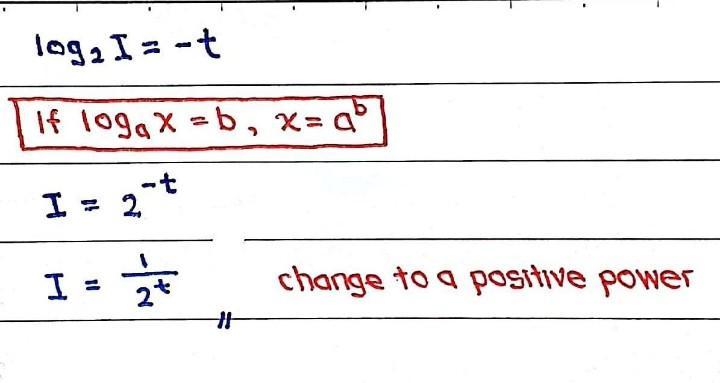 log₂ I = -t
If logₐ x = b, x = aᵇ
I = 2⁻ᵗ
I = 1/2ᵗ change to a positive power